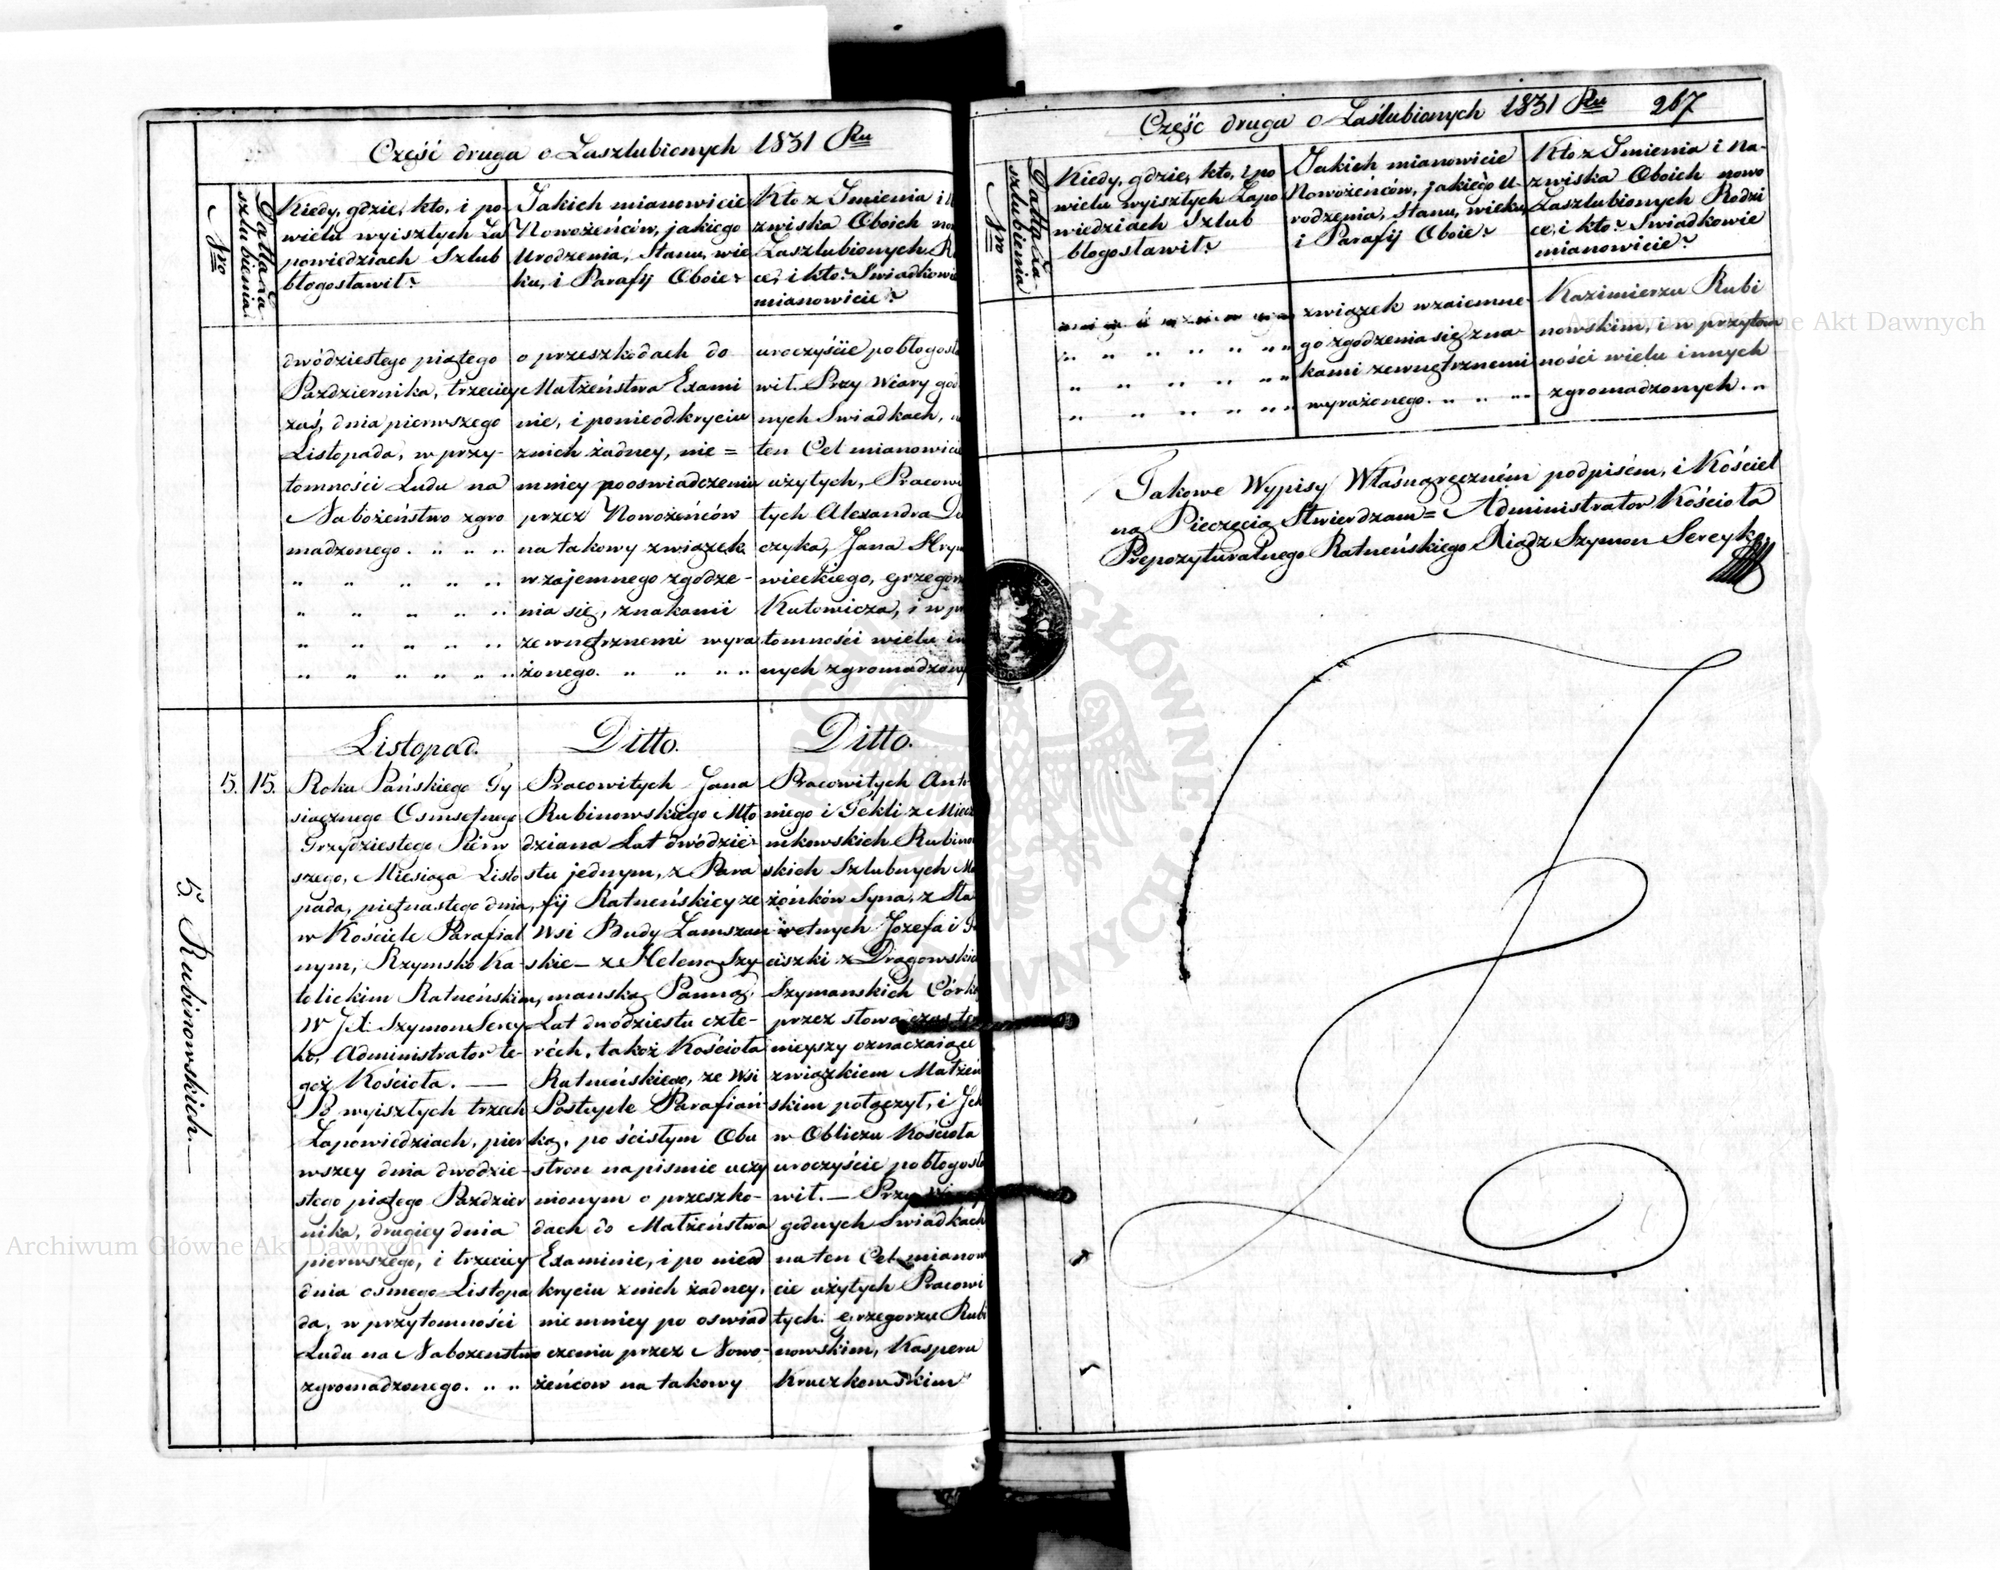 Część druga o Zaszlubionych 1831 Ru
Nro
Datta za-
szlubienia
Kiedy, gdzie, kto, i po
wielu wyiszłych Za
powiedziach Szlub
błogosławił?
Jakich mianowicie
Nowożeńców, jakiego
Urodzenia, Stanu, wie
ku, i Parafij Oboie?
Kto z Imienia i
zwiska Oboich no
Zaszlubionych R
ce, i kto? Swiadkowie
mianowicie?
dwódziestego piątego
Pazdziernika, trzeciey
zaś, dnia pierwszego
Listopada, w przy-
tomności Ludu na
Nabożeństwo zgro
madzonego.
o przeszkodach do
Małżeństwa Exami
nie, i ponieodkryciu
znich żadney, nie =
mniey pooswiadczeniu
przez Nowożeńców
na takowy związek
wzajemnego zgodze-
nia się, znakami
zewnętrznemi wyra
żonego.
uroczyście pobłogosła
wił. Przy Wiary god
nych Swiadkach,
ten Cel mianowicie
użytych, Pracowi
tych Alexandra
czyka, Jana Hry
wieckiego, Grzegorz
Kutowicza, i w pr
tomności wielu in
nych zgromadzony
Listopad.
Ditto.
Ditto.
5. Rubinowskich.—
5.
15.
Roku Pańskiego Ty
siącznego Osmsetnego
Trzydziestego Pierw
szego, Miesiąca Listo
pada, piętnastego dnia,
w Kościele Parafial
nym, Rzymsko Ka-
tolickim Ratneńskim,
W JX. Szymon Serey
ko, Administrator te-
goż Kościoła. —
Po wyiszłych trzech
Zapowiedziach, pier
wszey dnia dwódzie-
stego piątego Pazdzier
nika, drugiey dnia
pierwszego, i trzeciey
dnia osmego Listopa
da, w przytomności
Ludu na Nabożenstwo
zgromadzonego.
Pracowitych Jana
Rubinowskiego Mło
dziana Lat dwódzie-
stu jednym, z Para
fij Ratneńskiey ze
Wsi Budy Zamszan
skie— z Heleną Szy-
manską Panną,
Lat dwódziestu czte-
réch, takoż Kościoła
Ratneńskiego, ze Wsi
Postuple Parafian-
ką, po ścisłym Obu
stron na pismie uczy
nionym o przeszko-
dach do Małżeństwa
Examinie, i po nieod
kryciu znich żadney,
niemniey po oswiad
czeniu przez Nowo-
żeńców na takowy
Pracowitych Anto
niego i Tekli z Miecz
nikowskich Rubinow
skich Szlubnych Ma
żonków Syna, z Sta
wetnych Jozefa i
ciszki z Dragowskic
Szymanskich Córk
przez słowa czas te
nieyszy oznaczaiące
związkiem Małżeń
skim połączył, i Ich
w Obliczu Kościoła
uroczyście pobłogosła
wił. — Przy Wiary
godnych Swiadkach
na ten Cel mianowi
cie użytych Pracowi
tych: Grzegorzu Rubi
nowskim, Kasperu
Kruczkowskim
Część druga o Zaślubionych 1831 Ru 267
Nro
Datta za-
szlubienia
Kiedy, gdzie, kto, i po
wielu wyiszłych Zapo
wiedziach Szlub
błogosławił?
Jakich mianowicie
Nowożeńców, jakiego U-
rodzenia, Stanu, wieku,
i Parafij Oboie?
Kto z Imienia i Na-
zwiska Oboich nowo
Zaszlubionych Rodzi
ce, i kto? Swiadkowie
mianowicie?
związek wzaiemne-
go zgodzenia się zna-
kami zewnętrznemi
wyrażonego.
Kazimierzu Rubi
nowskim, i w przytom
ności wielu innych
zgromadzonych.
Takowe Wypisy Własnoręczném podpisém, i Kościel
ną Pieczęcią Stwierdzam = Administrator Kościoła
Prepozyturalnego Ratneńskiego Xiądz Szymon Sereyko
Archiwum Główne Akt Dawnych
Archiwum Główne Akt Dawnych
ARCHIWUM GŁÓWNE AKT DAWNYCH